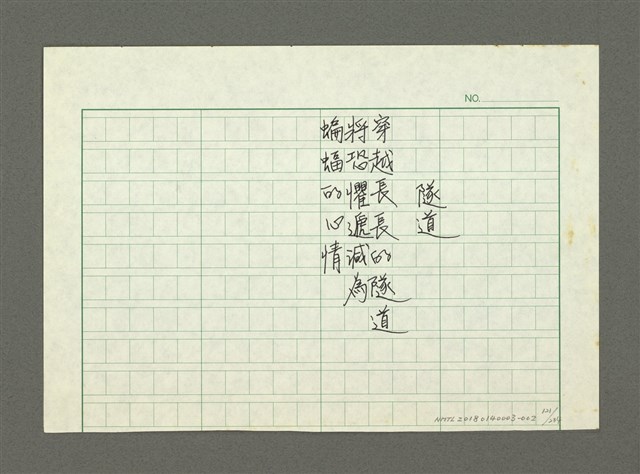 NO.
隧道
穿越長長的隧道
將恐懼遞減為
蝙蝠的心情
NMTL20180140003-002